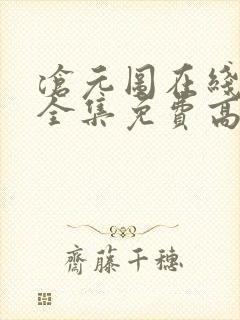 滄元圖在綫
全集免費高
齊藤千穗